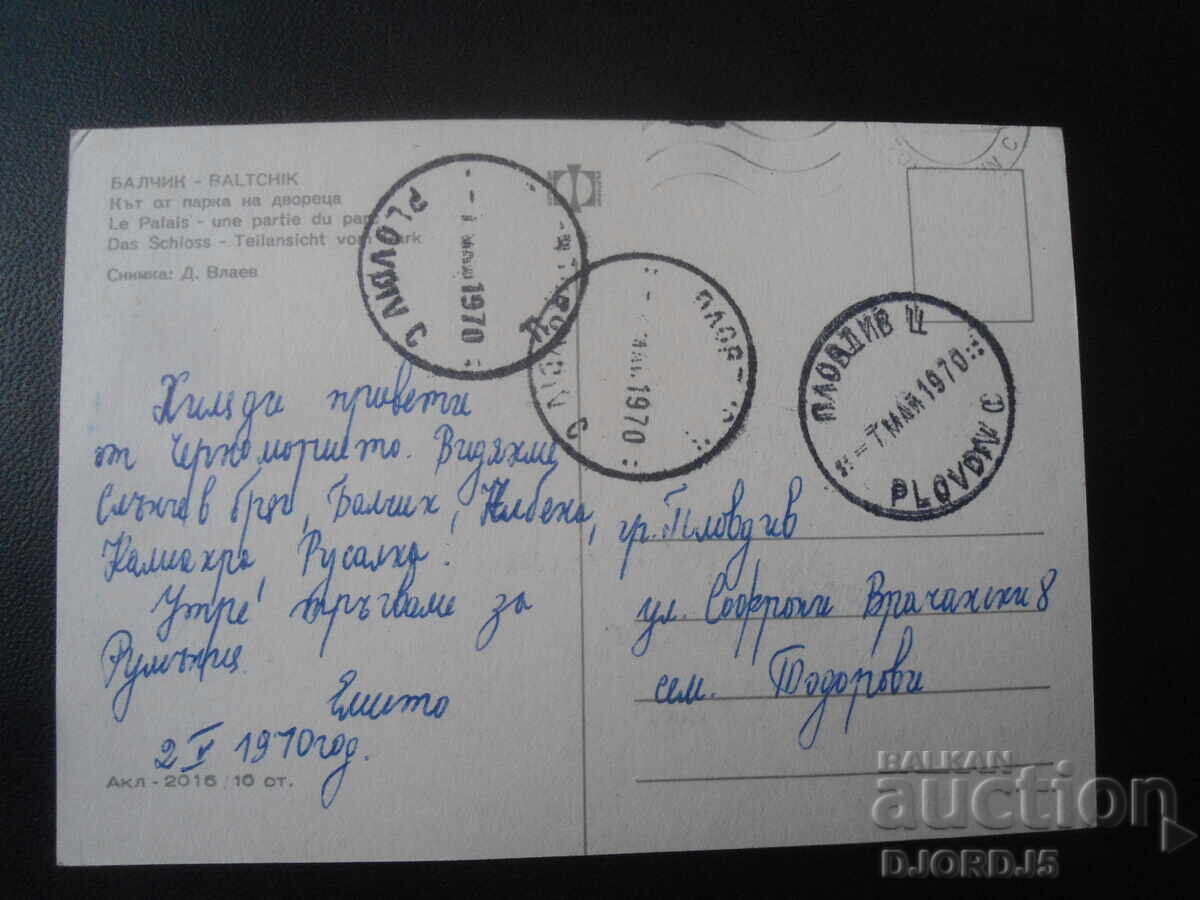 БАЛЧИК - BALTCHIK
Кът от парка на двореца
Le Palais - une partie du
Das Schloss - Teilansicht vom
Снимка: Д. Влаев
Хиляди привети
от Черноморието. Видяхме
Слънчев бряг, Балчик, Албена,
Калиакра, Русалка.
Утре тръгваме за
Румъния.
Емито
2 V 1970 год.
Акл - 2016 / 10 ст.
1970
1970
ПЛОВДИВ Ц
7 МАЙ 1970
PLOVDIV C
гр. Пловдив
ул. Софрони Врачански 8
сем. Тодорови
BALKAN
auction
DJORDJ5